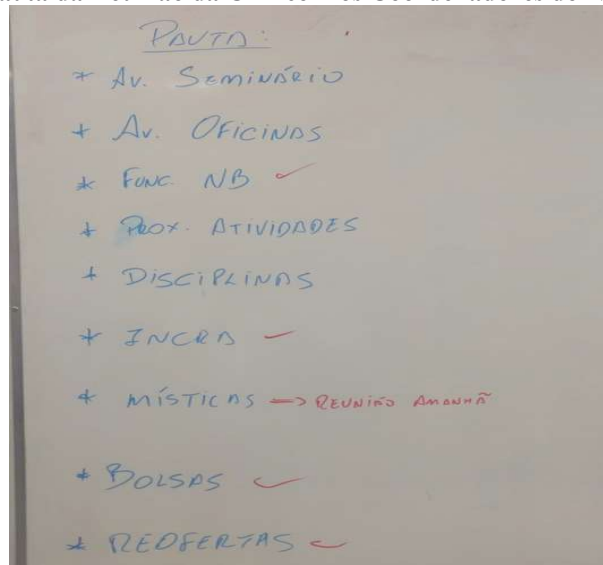 PAUTA:
* Av. SEMINÁRIO
* Av. OFICINAS
* FUNC. NB ✓
* PROX. ATIVIDADES
* DISCIPLINAS
* INCRA ✓
* MÍSTICAS => REUNIÃO AMANHÃ
* BOLSAS ✓
* REOFERTAS ✓